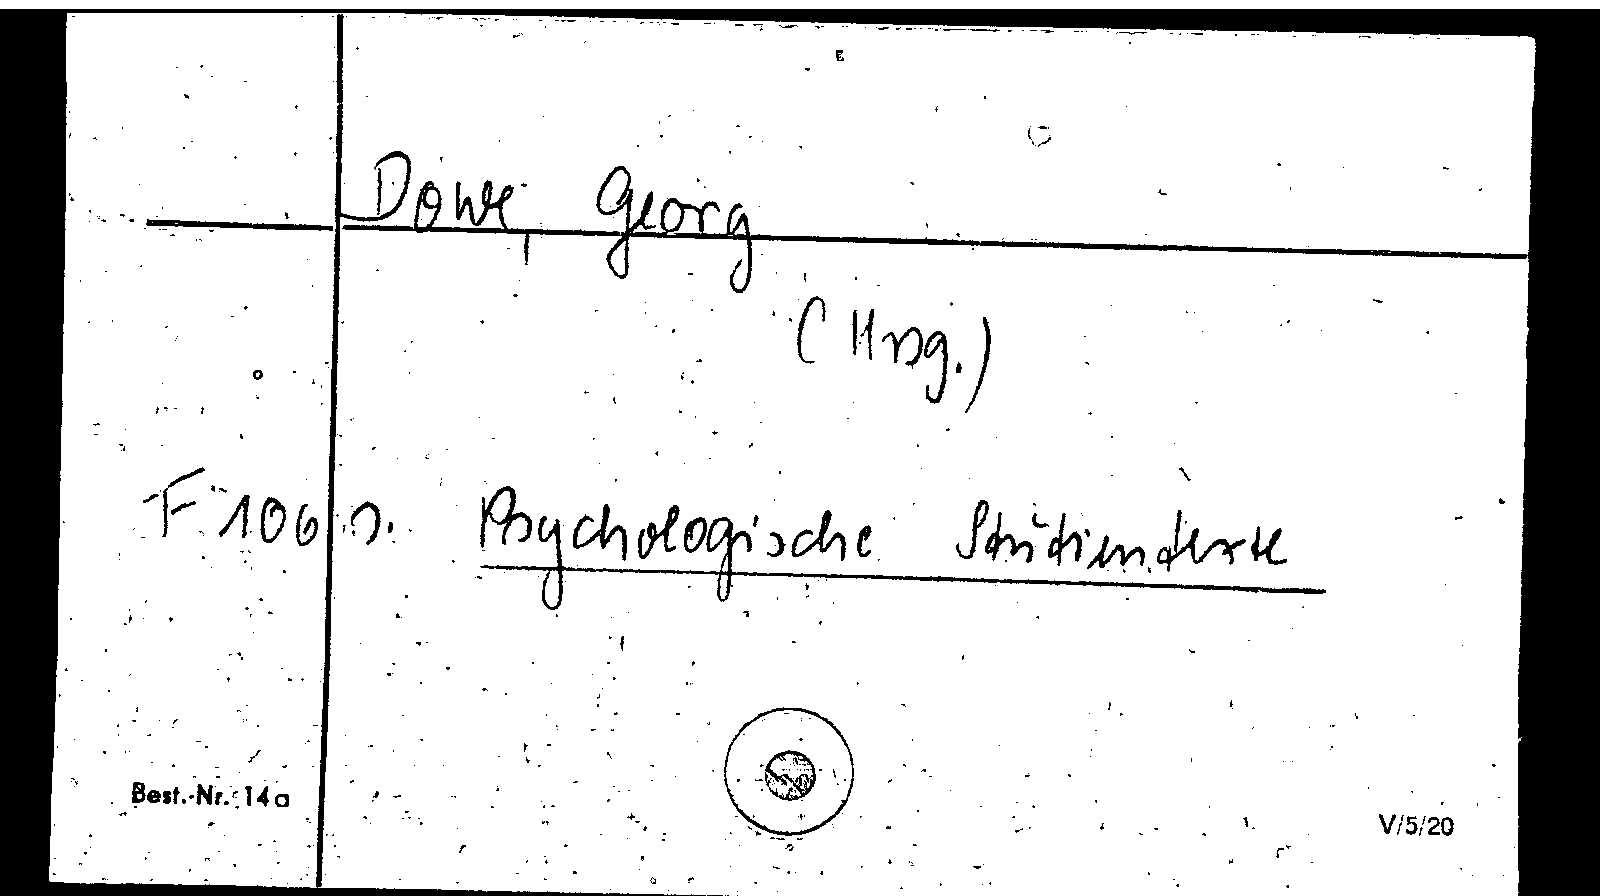 E
Dowe, Georg
(Hrsg.)
F 106 s. Psychologische Studientexte
Best.-Nr. 14a
V/5/20